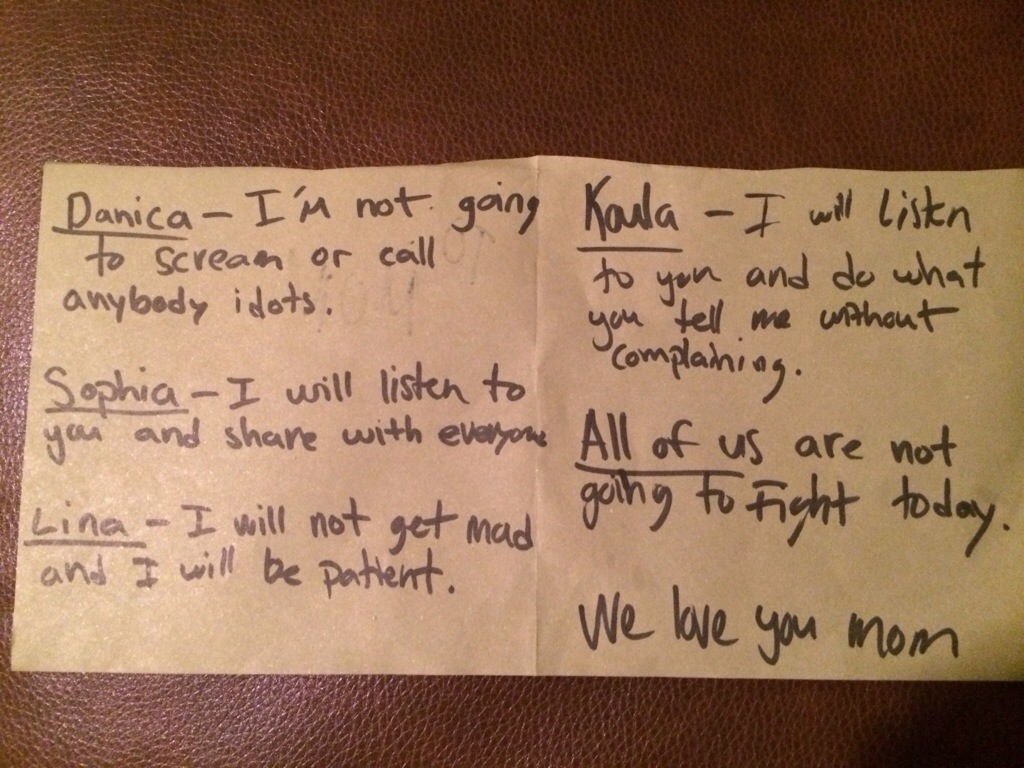 Danica – I'm not going
to scream or call
anybody idots.
Sophia – I will listen to
you and share with everyone
Lina – I will not get mad
and I will be patient.
Koula – I will listen
to you and do what
you tell me without
complaining.
All of us are not
going to Fight today.
We love you mom